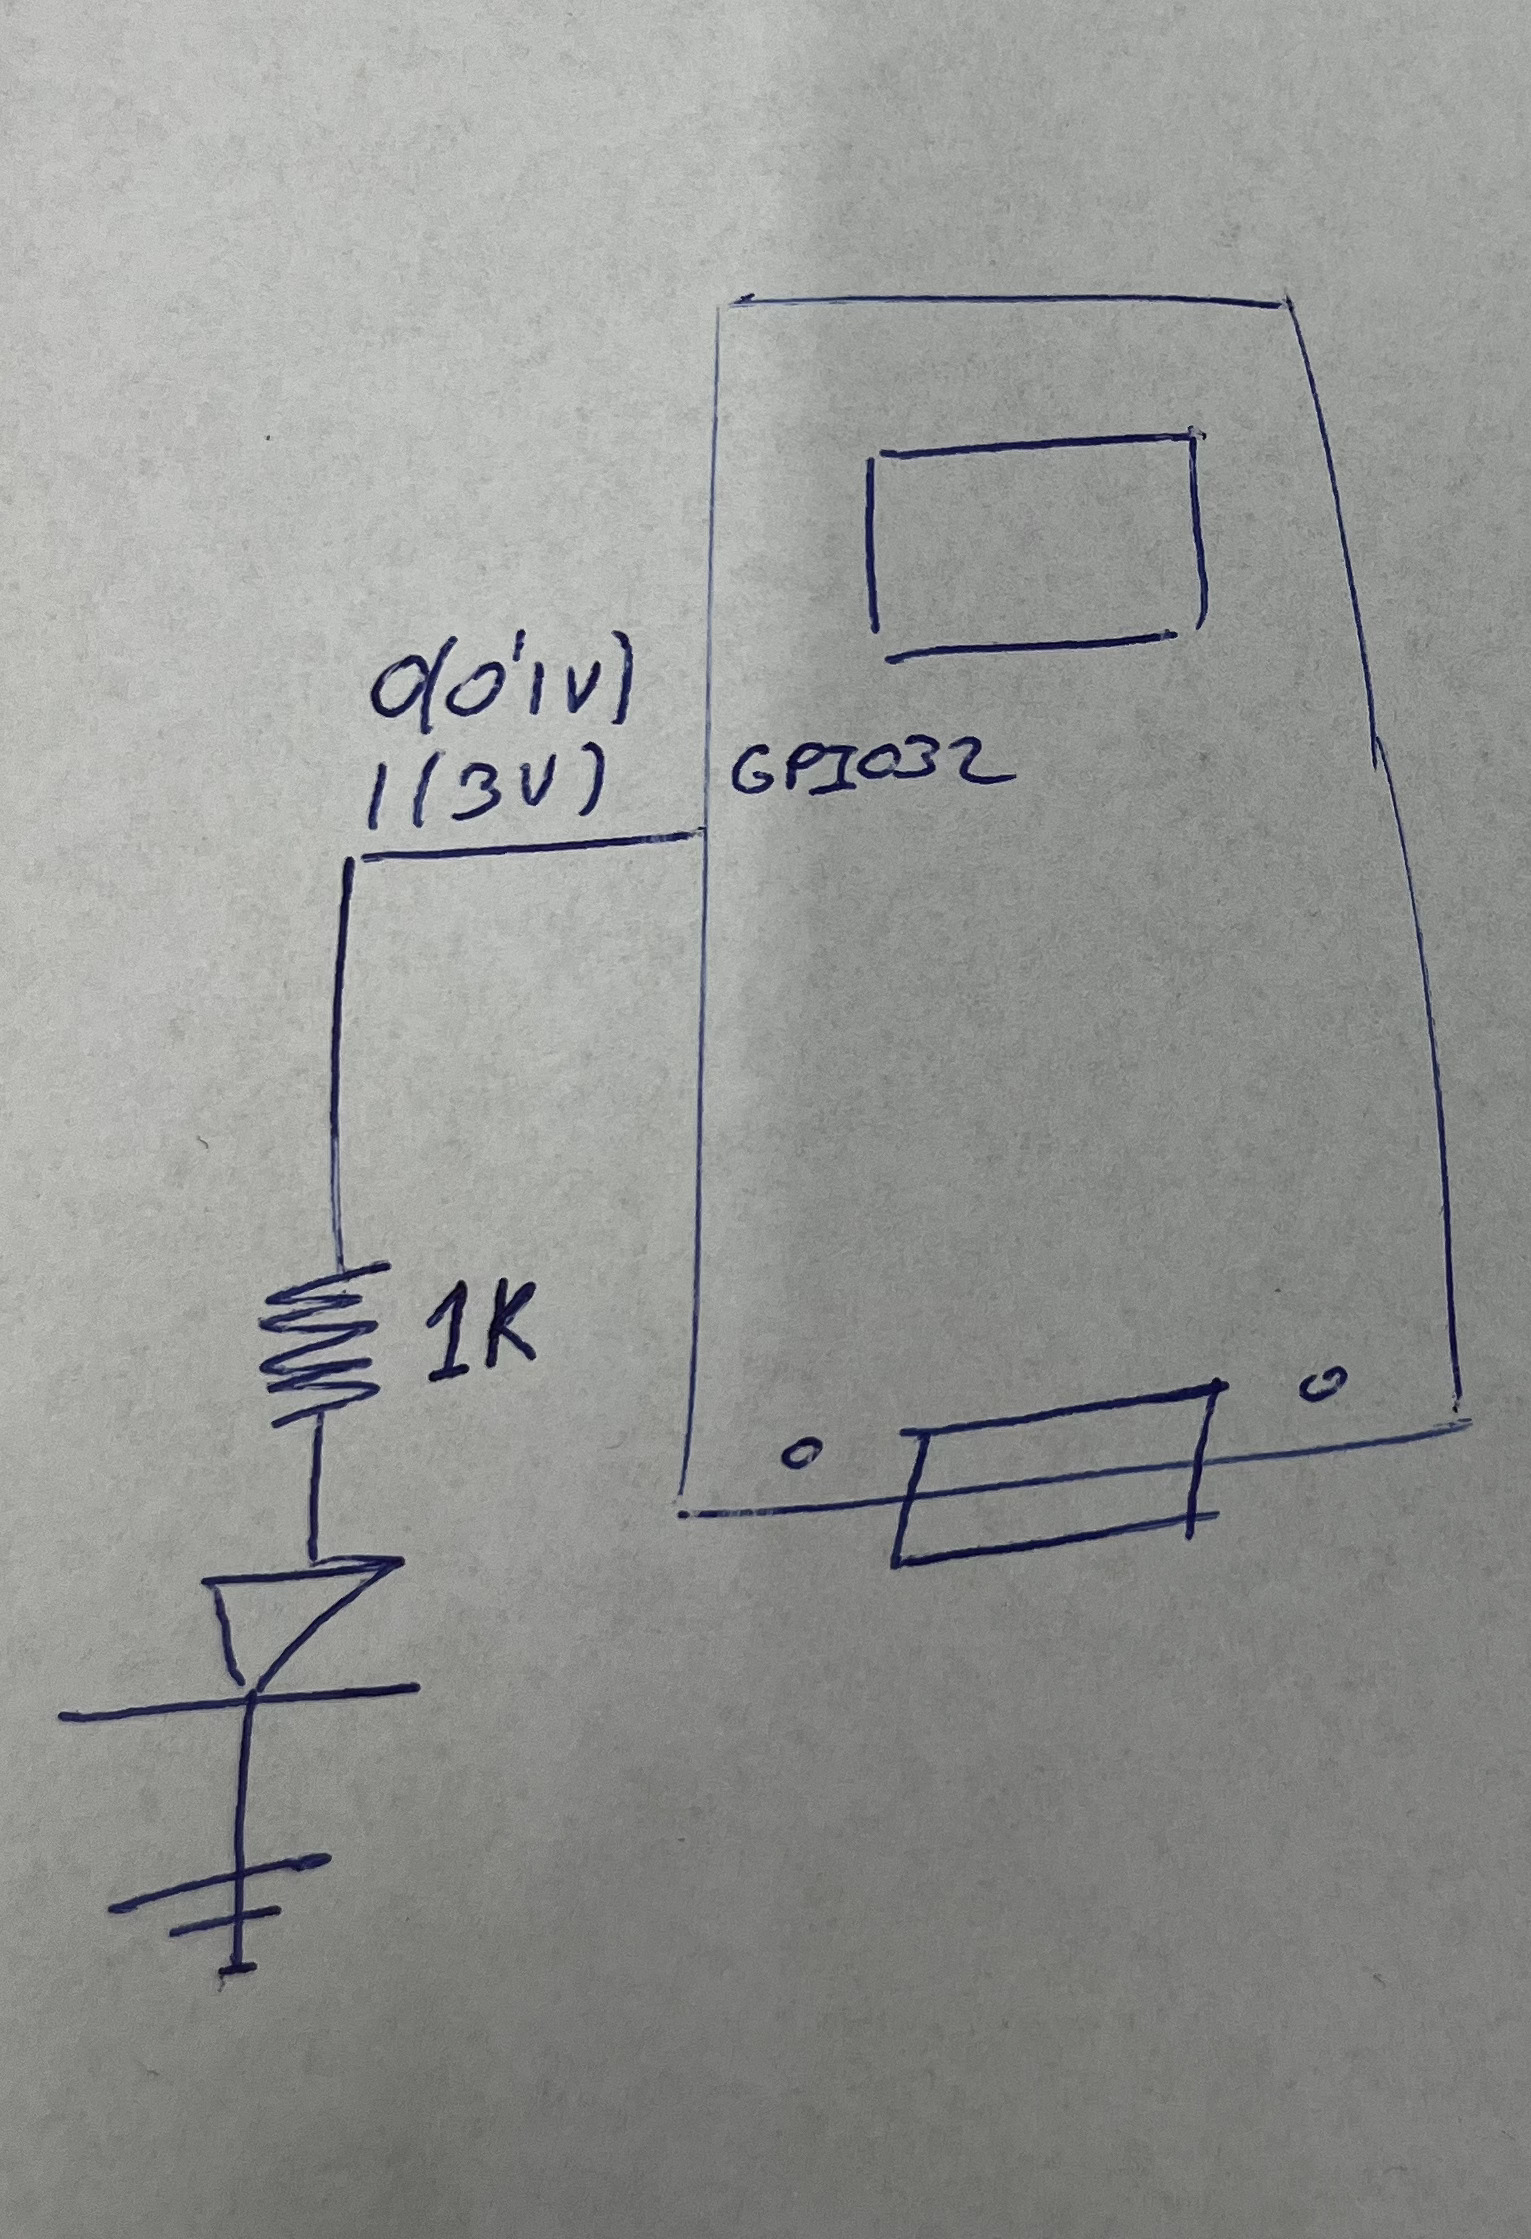 0(0'1V)
1(3V)
GPIO32
1K